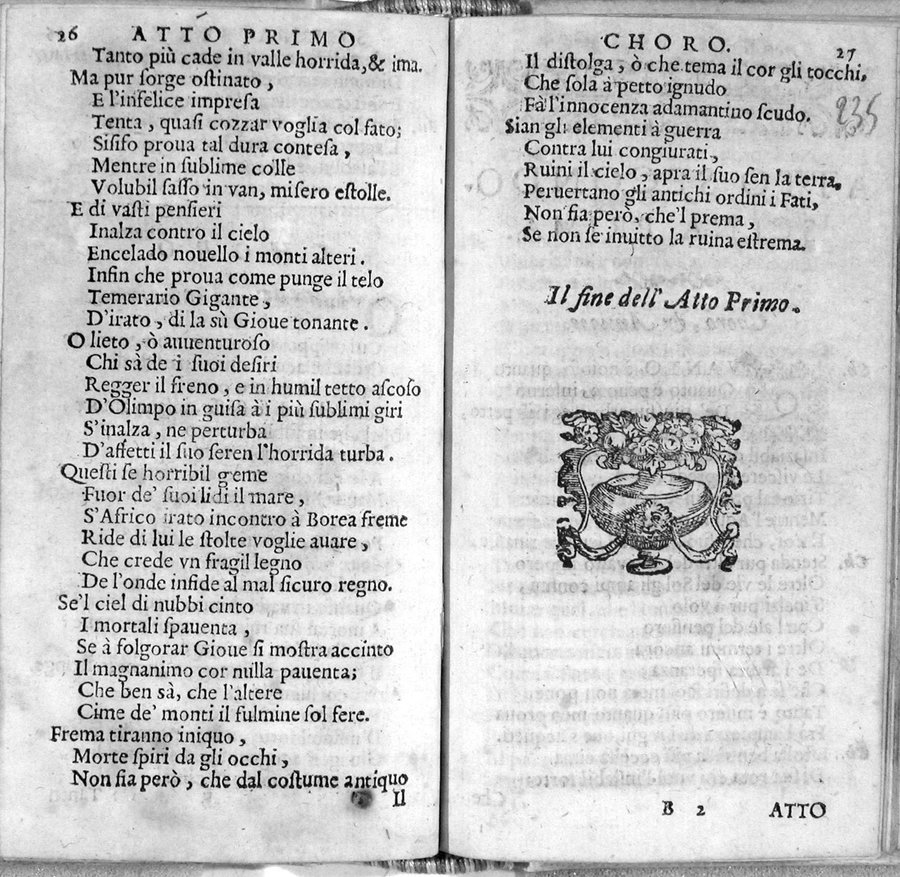 26 ATTO PRIMO
Tanto più cade in valle horrida, & ima.
Ma pur ſorge oſtinato,
E l'infelice impreſa
Tenta, quaſi cozzar voglia col fato;
Siſifo proua tal dura conteſa,
Mentre in ſublime colle
Volubil ſaſſo in van, miſero eſtolle.
E di vaſti penſieri
Inalza contro il cielo
Encelado nouello i monti alteri.
Infin che proua come punge il telo
Temerario Gigante,
D'irato, di la sù Gioue tonante.
O lieto, ò auuenturoſo
Chi sà de i ſuoi deſiri
Regger il freno, e in humil tetto aſcoſo
D'Olimpo in guiſa à i più ſublimi giri
S'inalza, ne perturba
D'affetti il ſuo ſeren l'horrida turba.
Queſti ſe horribil geme
Fuor de' ſuoi lidi il mare,
S'Africo irato incontro à Borea freme
Ride di lui le ſtolte voglie auare,
Che crede vn fragil legno
De l'onde infide al mal ſicuro regno.
Se'l ciel di nubbi cinto
I mortali ſpauenta,
Se à folgorar Gioue ſi moſtra accinto
Il magnanimo cor nulla pauenta;
Che ben sà, che l'altere
Cime de' monti il fulmine ſol fere.
Frema tiranno iniquo,
Morte ſpiri da gli occhi,
Non ſia però, che dal coſtume antiquo
Il
CHORO. 27
Il diſtolga, ò che tema il cor gli tocchi,
Che ſola à petto ignudo
Fà l'innocenza adamantino ſcudo.
235
Sian gli elementi à guerra
Contra lui congiurati,
Ruini il cielo, apra il ſuo ſen la terra,
Peruertano gli antichi ordini i Fati,
Non ſia però, che'l prema,
Se non ſe inuitto la ruina eſtrema.
Il fine dell' Atto Primo.
B 2 ATTO